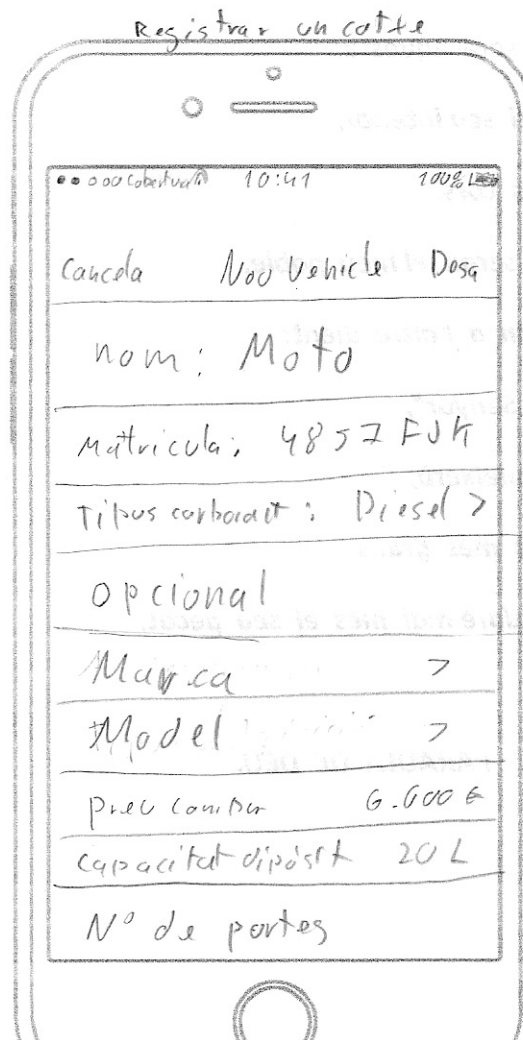 Registrar un cotxe
Cobertura 10:41 100%
Cancela Nou Vehicle Desa
nom: Moto
Matricula: 4857 FJK
Tipus carborant: Diesel >
opcional
Marca >
Model >
preu compra 6.000 €
capacitat dipòsit 20 L
Nº de portes